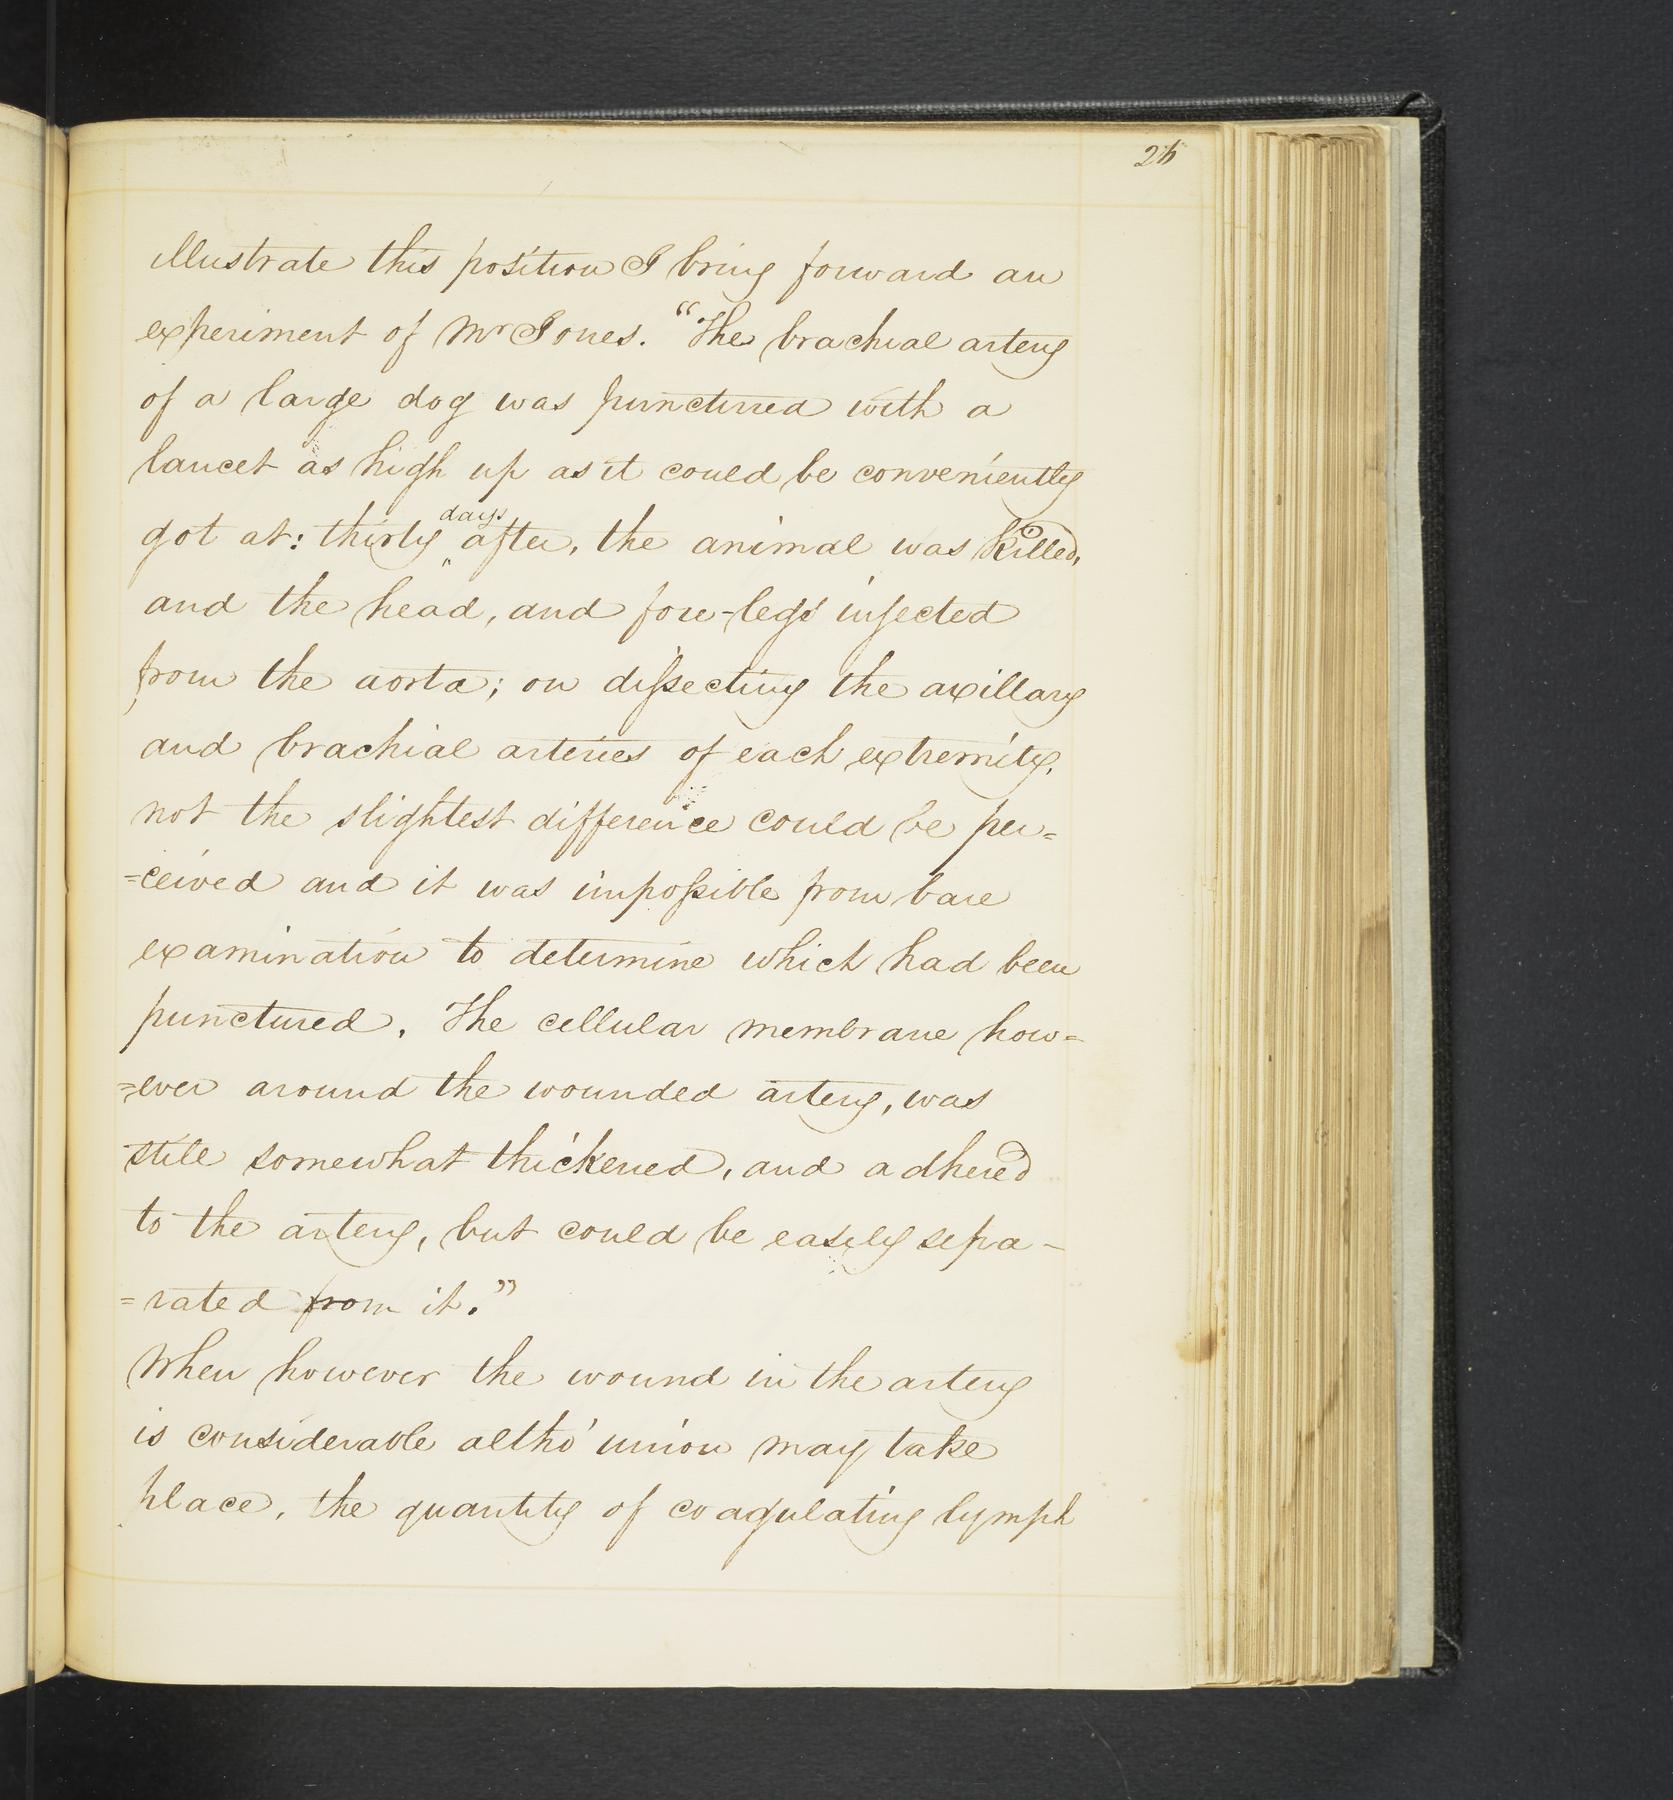 illustrate this position I bring forward an
experiment of Mr Jones. "The brachial artery
of a large dog was punctured with a
lancet as high up as it could be conveniently
days
got at: thirty after, the animal was killed,
and the head, and fore-legs injected
from the aorta; on dissecting the axillary
and brachial arteries of each extremity,
not the slightest difference could be per=
=ceived and it was impossible from bare
examination to determine which had been
punctured. The cellular membrane how=
=ever around the wounded artery, was
still somewhat thickened, and adhered
to the artery, but could be easily sepa-
=rated from it."
When however the wound in the artery
is considerable altho' union may take
place, the quantity of coagulating lymph